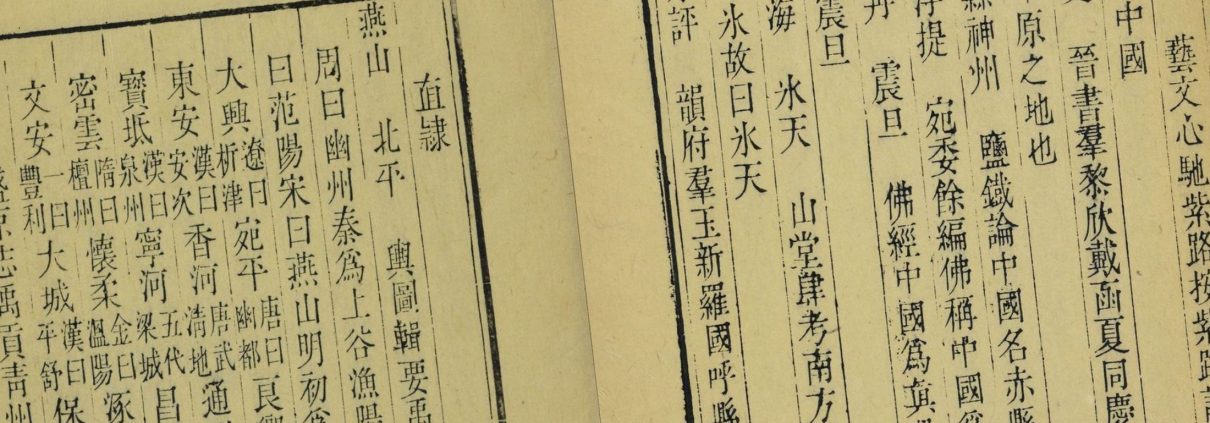 藝文心馳紫路按紫路
中國
晉書羣黎欣戴函夏同慶
原之地也
神州 鹽鐵論中國名赤縣
浮提 宛委餘編佛稱中國為
丹 震旦 佛經中國為眞
震旦
海 氷天 山堂肆考南方
氷故曰氷天
評 韻府羣玉新羅國呼縣
直隸
燕山 北平 輿圖輯要禹
周曰幽州秦為上谷漁陽
曰范陽宋曰燕山明初為
大興遼曰析津宛平唐曰幽都良鄉
東安漢曰安次香河唐武清地通
寶坻漢曰泉州寧河五代梁城昌
密雲隋曰檀州懷柔金曰溫陽涿
文安一曰豐利大城漢曰平舒保
盛京志禹貢青州